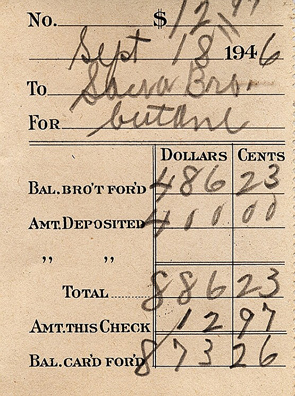 No. $ 12.97
Sept 18 1946
To Sacra Bro
For butane
Dollars Cents
Bal. bro't for'd 486 23
Amt. Deposited 400 00
" "
Total 886 23
Amt. this Check 12 97
Bal. car'd for'd 873 26